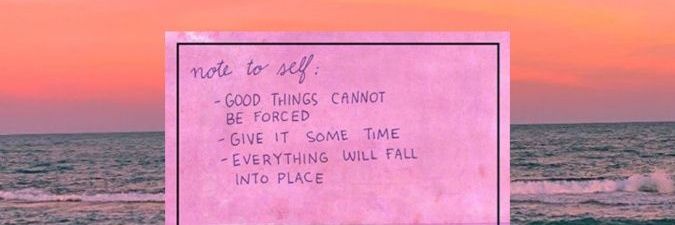 note to self:
- GOOD THINGS CANNOT
BE FORCED
- GIVE IT SOME TIME
- EVERYTHING WILL FALL
INTO PLACE